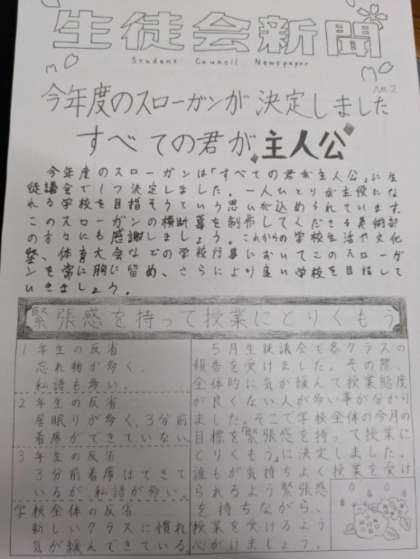 生徒会新聞
Student Council Newspaper
No.2
今年度のスローガンが決定しました
すべての君が主人公
今年度のスローガンは「すべての君が主人公」に生
徒議会で1つ決定しました。一人ひとりが主役にな
れる学校を目指そうという思いが込められています。
このスローガンの横断幕を制作してくださる美術部
の方々にも感謝しましょう。これからの学校生活や文化
祭、体育大会などの学校行事においてこのスローガ
ンを常に胸に留め、さらにより良い学校を目指して
いきましょう。
緊張感を持って授業にとりくもう
1年生の反省
忘れ物が多く、
私語も多い。
2年生の反省
居眠りが多く、3分前
着席ができていない。
3年生の反省
3分前着席はできて
いるが、私語が多い。
学校全体の反省
新しいクラスに慣れ
気が緩んできている
5月生徒議会で各クラスの
報告を受けました。その際、
全体的に気が緩んで授業態度
が良くない人が多い事が分かり
ました。そこで学校全体の今月の
目標を「緊張感を持って授業に
とりくもう」に決定しました。
誰もが気持ちよく授業を受け
られるよう緊張感
を持ちながら、
授業を受けるよう
心がけましょう。